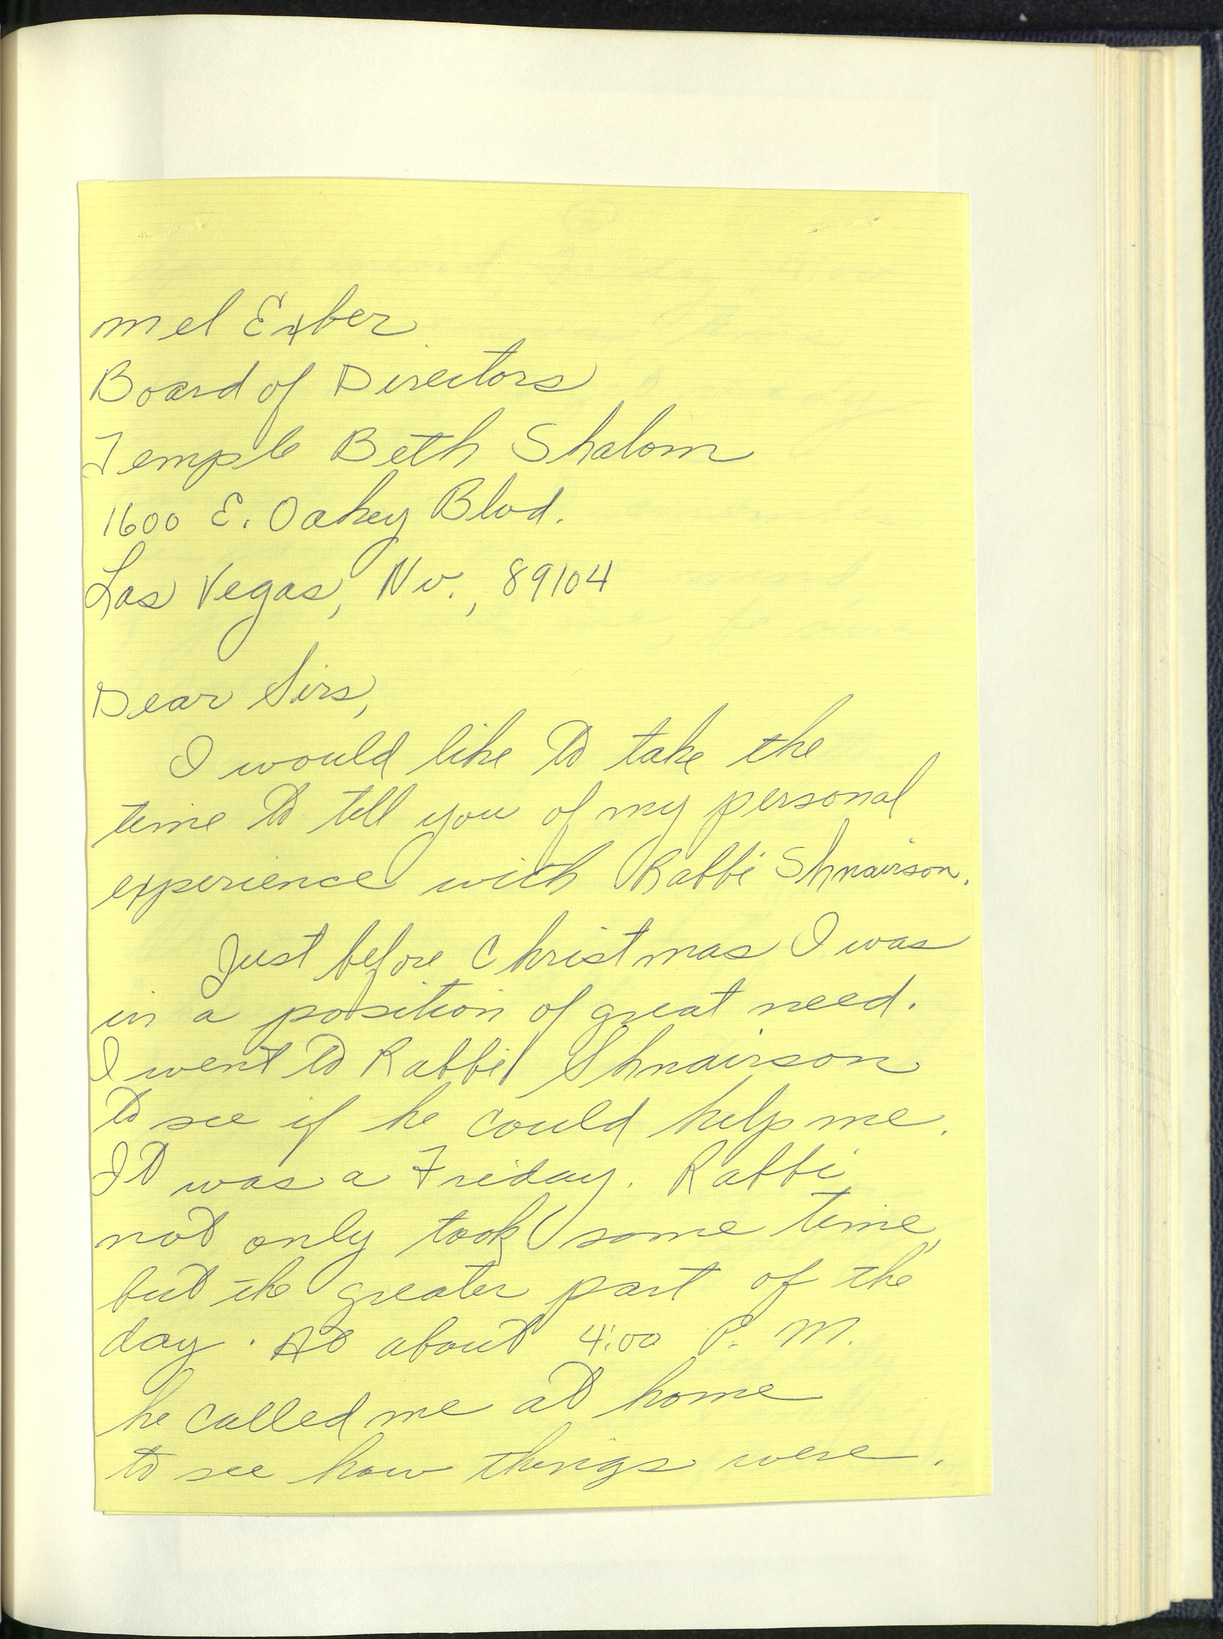 Mel Exber
Board of Directors
Temple Beth Shalom
1600 E. Oakey Blvd.
Las Vegas, Nv., 89104
Dear Sirs,
I would like to take the
time to tell you of my personal
experience with Rabbi Shnairson.
Just before Christmas I was
in a position of great need.
I went to Rabbi Shnairson
to see if he could help me.
It was a Friday. Rabbi
not only took some time,
but the greater part of the
day. At about 4:00 P. M.
he called me at home
to see how things were.